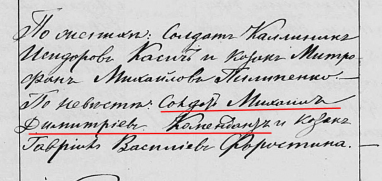 По жениху: Солдатъ Каллиникъ
Исидоровъ Касичъ и козакъ Митро-
фанъ Михайловъ Пилипенко.—
По невѣстѣ: Солдатъ Михаилъ
Димитріевъ Комендантъ и козакъ
Гавріилъ Василіевъ Форостина.—